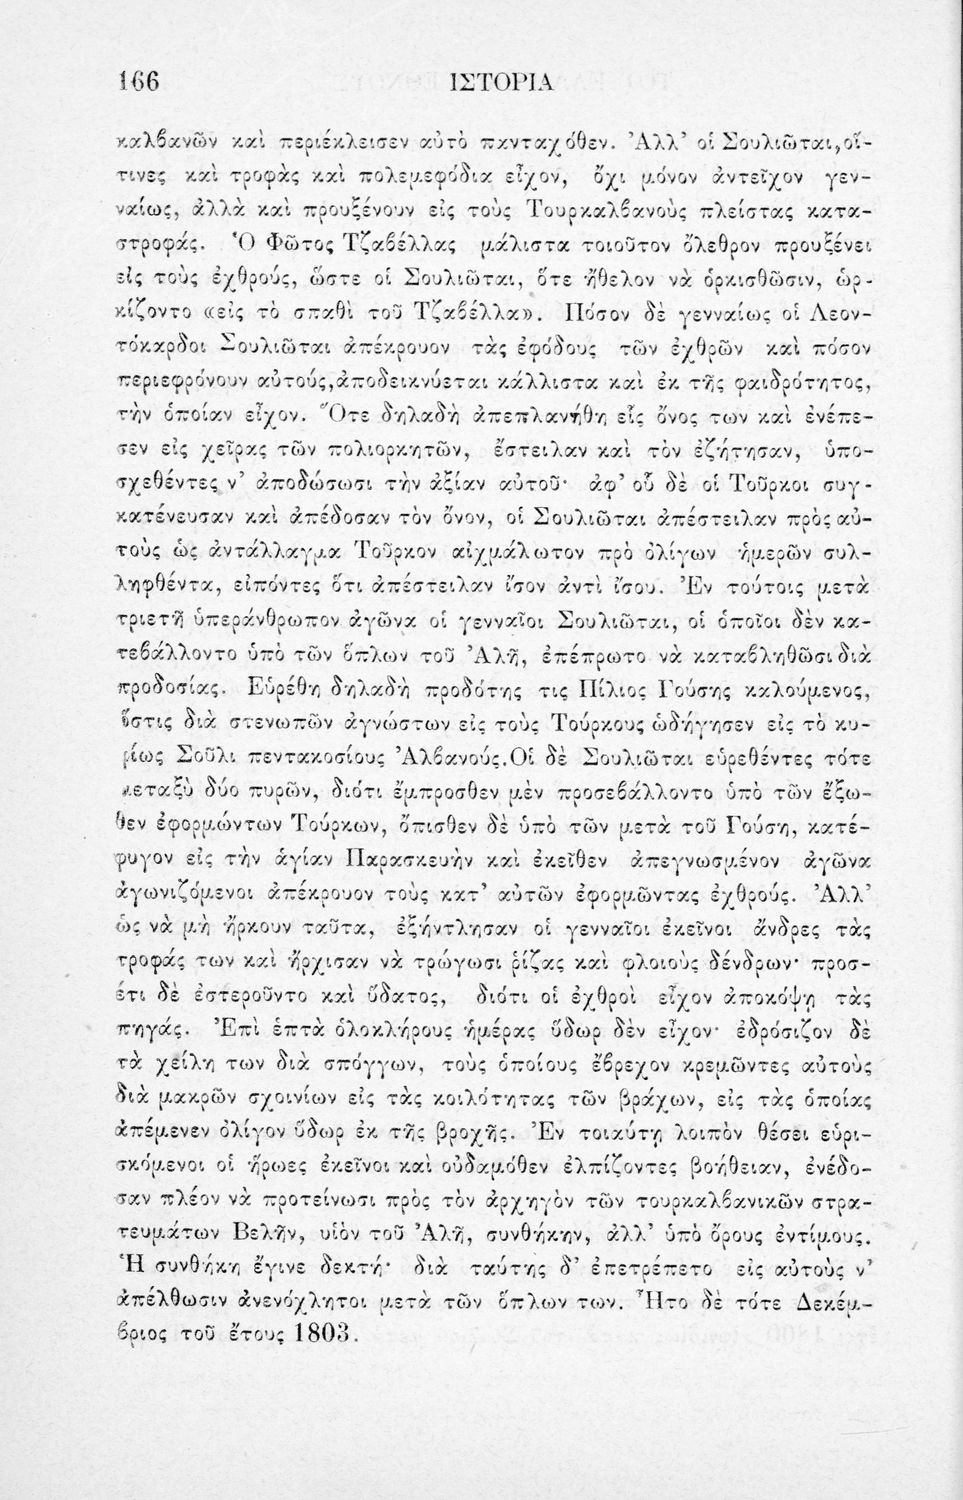 166 ΙΣΤΟΡΙΑ
καλβανῶν καὶ περιέκλεισεν αὐτὸ πανταχόθεν. Ἀλλ' οἱ Σουλιῶται, οἵ-
τινες καὶ τροφὰς καὶ πολεμεφόδια εἶχον, ὄχι μόνον ἀντεῖχον γεν-
ναίως, ἀλλὰ καὶ προυξένουν εἰς τοὺς Τουρκαλβανοὺς πλείστας κατα-
στροφάς. Ὁ Φῶτος Τζαβέλλας μάλιστα τοιοῦτον ὄλεθρον προυξένει
εἰς τοὺς ἐχθρούς, ὥστε οἱ Σουλιῶται, ὅτε ἤθελον νὰ ὁρκισθῶσιν, ὡρ-
κίζοντο «εἰς τὸ σπαθὶ τοῦ Τζαβέλλα». Πόσον δὲ γενναίως οἱ Λεον-
τόκαρδοι Σουλιῶται ἀπέκρουον τὰς ἐφόδους τῶν ἐχθρῶν καὶ πόσον
περιεφρόνουν αὐτούς, ἀποδεικνύεται κάλλιστα καὶ ἐκ τῆς φαιδρότητος,
τὴν ὁποίαν εἶχον. Ὅτε δηλαδὴ ἀπεπλανήθη εἷς ὄνος των καὶ ἐνέπε-
σεν εἰς χεῖρας τῶν πολιορκητῶν, ἔστειλαν καὶ τὸν ἐζήτησαν, ὑπο-
σχεθέντες ν' ἀποδώσωσι τὴν ἀξίαν αὐτοῦ· ἀφ' οὗ δὲ οἱ Τοῦρκοι συγ-
κατένευσαν καὶ ἀπέδοσαν τὸν ὄνον, οἱ Σουλιῶται ἀπέστειλαν πρὸς αὐ-
τοὺς ὡς ἀντάλλαγμα Τοῦρκον αἰχμάλωτον πρὸ ὀλίγων ἡμερῶν συλ-
ληφθέντα, εἰπόντες ὅτι ἀπέστειλαν ἴσον ἀντὶ ἴσου. Ἐν τούτοις μετὰ
τριετῆ ὑπεράνθρωπον ἀγῶνα οἱ γενναῖοι Σουλιῶται, οἱ ὁποῖοι δὲν κα-
τεβάλλοντο ὑπὸ τῶν ὅπλων τοῦ Ἀλῆ, ἐπέπρωτο νὰ καταβληθῶσι διὰ
προδοσίας. Εὑρέθη δηλαδὴ προδότης τις Πίλιος Γούσης καλούμενος,
ὅστις διὰ στενωπῶν ἀγνώστων εἰς τοὺς Τούρκους ὡδήγησεν εἰς τὸ κυ-
ρίως Σοῦλι πεντακοσίους Ἀλβανούς. Οἱ δὲ Σουλιῶται εὑρεθέντες τότε
μεταξὺ δύο πυρῶν, διότι ἔμπροσθεν μὲν προσεβάλλοντο ὑπὸ τῶν ἔξω-
θεν ἐφορμώντων Τούρκων, ὄπισθεν δὲ ὑπὸ τῶν μετὰ τοῦ Γούση, κατέ-
φυγον εἰς τὴν ἁγίαν Παρασκευὴν καὶ ἐκεῖθεν ἀπεγνωσμένον ἀγῶνα
ἀγωνιζόμενοι ἀπέκρουον τοὺς κατ' αὐτῶν ἐφορμῶντας ἐχθρούς. Ἀλλ'
ὡς νὰ μὴ ἤρκουν ταῦτα, ἐξήντλησαν οἱ γενναῖοι ἐκεῖνοι ἄνδρες τὰς
τροφάς των καὶ ἤρχισαν νὰ τρώγωσι ῥίζας καὶ φλοιοὺς δένδρων· προσ-
έτι δὲ ἐστεροῦντο καὶ ὕδατος, διότι οἱ ἐχθροὶ εἶχον ἀποκόψῃ τὰς
πηγάς. Ἐπὶ ἑπτὰ ὁλοκλήρους ἡμέρας ὕδωρ δὲν εἶχον· ἐδρόσιζον δὲ
τὰ χείλη των διὰ σπόγγων, τοὺς ὁποίους ἔβρεχον κρεμῶντες αὐτοὺς
διὰ μακρῶν σχοινίων εἰς τὰς κοιλότητας τῶν βράχων, εἰς τὰς ὁποίας
ἀπέμενεν ὀλίγον ὕδωρ ἐκ τῆς βροχῆς. Ἐν τοιαύτῃ λοιπὸν θέσει εὑρι-
σκόμενοι οἱ ἥρωες ἐκεῖνοι καὶ οὐδαμόθεν ἐλπίζοντες βοήθειαν, ἐνέδο-
σαν πλέον νὰ προτείνωσι πρὸς τὸν ἀρχηγὸν τῶν τουρκαλβανικῶν στρα-
τευμάτων Βελῆν, υἱὸν τοῦ Ἀλῆ, συνθήκην, ἀλλ' ὑπὸ ὅρους ἐντίμους.
Ἡ συνθήκη ἔγινε δεκτή· διὰ ταύτης δ' ἐπετρέπετο εἰς αὐτοὺς ν'
ἀπέλθωσιν ἀνενόχλητοι μετὰ τῶν ὅπλων των. Ἦτο δὲ τότε Δεκέμ-
βριος τοῦ ἔτους 1803.